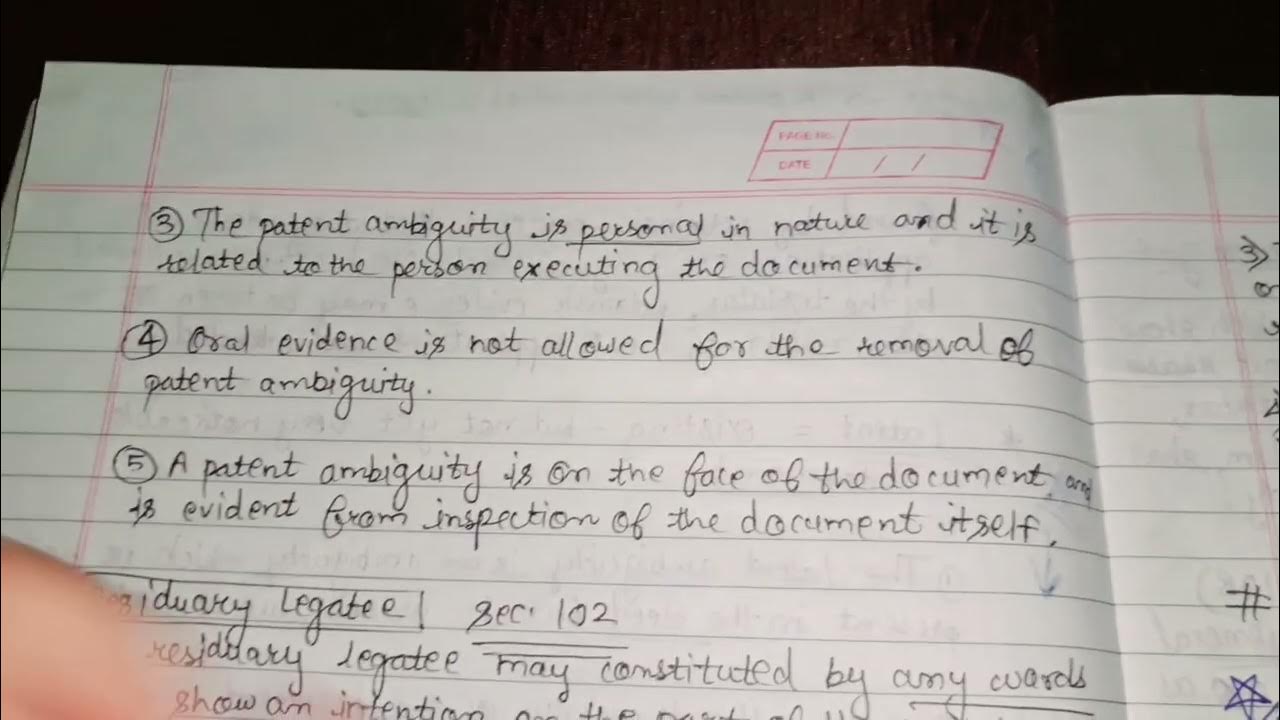 PAGE NO.
DATE / /
③ The patent ambiguity is personal in nature and it is
related to the person executing the document.
④ Oral evidence is not allowed for the removal of
patent ambiguity.
⑤ A patent ambiguity is on the face of the document, and
is evident from inspection of the document itself.
siduary Legatee Sec. 102
residuary legatee may constituted by any words
show an intention on the part of
3>
#